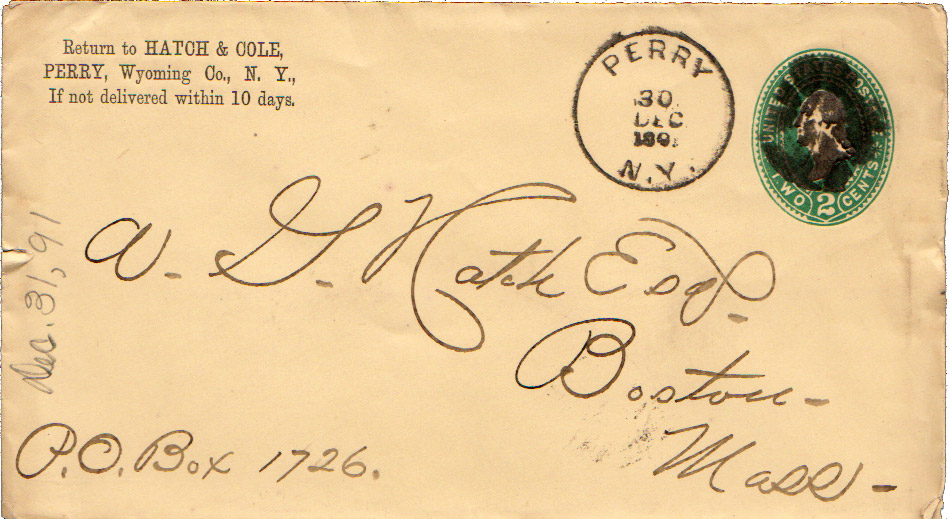 Return to HATCH & COLE,
PERRY, Wyoming Co., N. Y.,
If not delivered within 10 days.
PERRY
30
DEC
N.Y.
UNITED STATES POSTAGE
TWO 2 CENTS
W. G. Hatch Esq.
Boston-
Mass-
P.O. Box 1726.
Dec. 31, 91